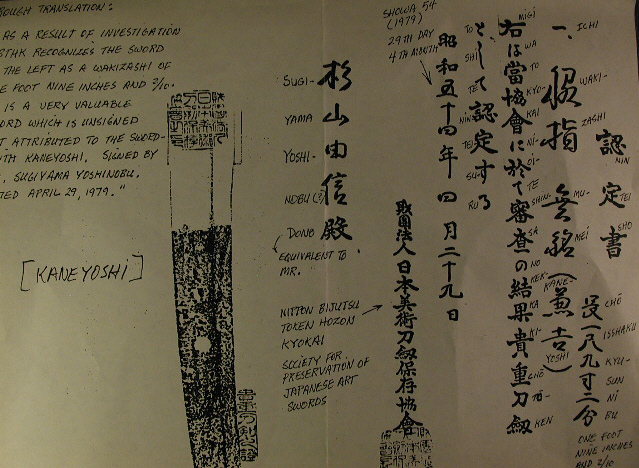 ROUGH TRANSLATION:
AS A RESULT OF INVESTIGATION
RECOGNIZES THE SWORD
THE LEFT AS A WAKIZASHI OF
NINE INCHES AND 2/10.
IS A VERY VALUABLE
WHICH IS UNSIGNED
ATTRIBUTED TO THE SWORD-
KANEYOSHI. SIGNED BY
SUGIYAMA YOSHINOBU.
APRIL 29, 1979."
[KANEYOSHI]
認定書
NIN
TEI
SHO
一、脇指 無銘(兼吉)
ICHI
WAKI-
ZASHI
MU-
MEI
KANE-
YOSHI
長一尺九寸二分
CHŌ
ISSHAKU
KYU-
SUN
NI
BU
ONE FOOT
NINE INCHES
AND 2/10
右は當協會に於て審査の結果貴重刀劔
MIGI
WA
TO
KYO-
KAI
NI
OI-
TE
SHIN-
SA
NO
KEK-
KA
KI-
CHŌ
TO-
KEN
として認定する
TO
SHI
TE
NIN
TEI
SU-
RU
昭和五十四年四月二十九日
SHOWA 54
(1979)
29TH DAY
4TH MONTH
財團法人日本美術刀劔保存協會
NITTON BIJUTSU
TOKEN HOZON
KYOKAI
SOCIETY FOR
PRESERVATION OF
JAPANESE ART
SWORDS
杉山由信殿
SUGI-
YAMA
YOSHI-
NOBU (?)
DONO
EQUIVALENT TO
MR.